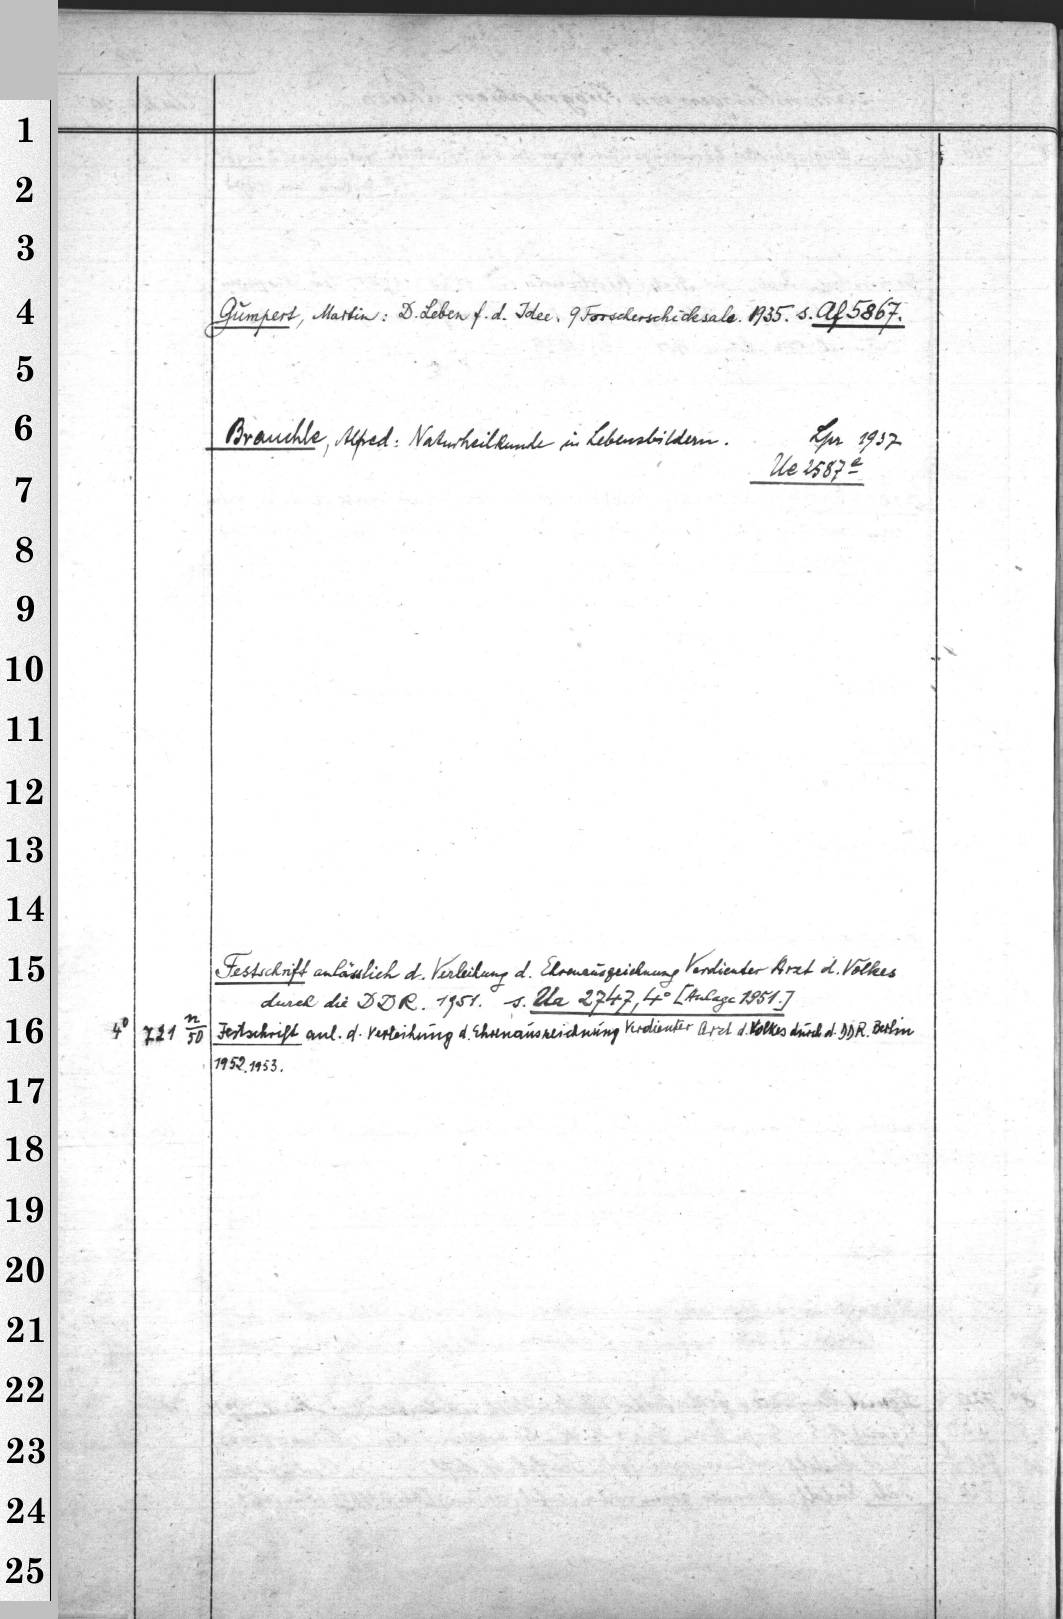 1
2
3
4
Gumpert, Martin: D. Leben f. d. Idee. 9 Forscherschicksale. 1935. s. Af 5867.
5
6
Brauchle, Alfred: Naturheilkunde in Lebensbildern. Lpz 1937
Ue 2587 a
7
8
9
10
11
12
13
14
15
Festschrift anlässlich d. Verleihung d. Ehrenauszeichnung Verdienter Arzt d. Volkes
durch die DDR. 1951. s. Ua 2747, 4° [Anlage 1951.]
16
4° 721 n/50 Festschrift anl. d. Verleihung d. Ehrenauszeichnung Verdienter Arzt d. Volkes durch d. DDR. Berlin
1952.1953.
17
18
19
20
21
22
23
24
25